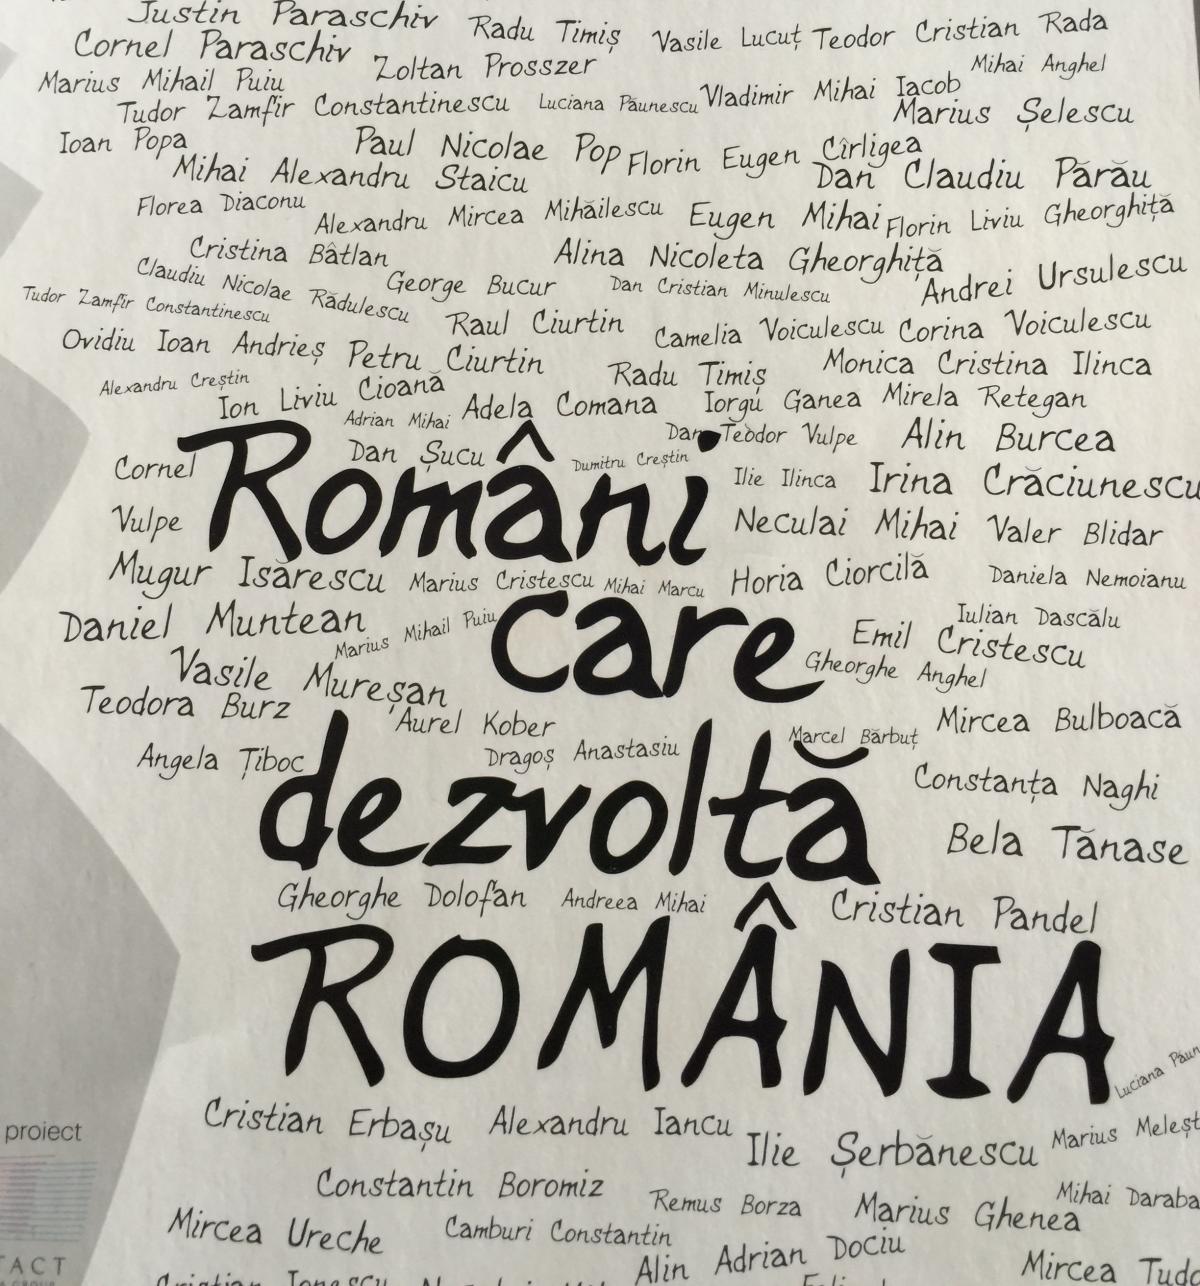 Justin Paraschiv Radu Timiș Vasile Lucuț Teodor Cristian Rada
Cornel Paraschiv Zoltan Prosszer Mihai Anghel
Marius Mihail Puiu Vladimir Mihai Iacob
Tudor Zamfir Constantinescu Luciana Păunescu Marius Șelescu
Ioan Popa Paul Nicolae Pop Florin Eugen Cîrligea
Mihai Alexandru Staicu Dan Claudiu Părău
Florea Diaconu Alexandru Mircea Mihăilescu Eugen Mihai Florin Liviu Gheorghiță
Cristina Bâtlan Alina Nicoleta Gheorghiță
Claudiu Nicolae Rădulescu George Bucur Dan Cristian Minulescu Andrei Ursulescu
Tudor Zamfir Constantinescu Raul Ciurtin Camelia Voiculescu Corina Voiculescu
Ovidiu Ioan Andrieș Petru Ciurtin Radu Timiș Monica Cristina Ilinca
Alexandru Creștin Ion Liviu Cioană Adela Comana Iorgu Ganea Mirela Retegan
Adrian Mihai Dan Teodor Vulpe Alin Burcea
Cornel Dan Șucu Dumitru Creștin Ilie Ilinca Irina Crăciunescu
Români
Vulpe Neculai Mihai Valer Blidar
Mugur Isărescu Marius Cristescu Mihai Marcu Horia Ciorcilă Daniela Nemoianu
Daniel Muntean Marius Mihail Puiu Emil Cristescu Iulian Dascălu
care
Vasile Mureșan Gheorghe Anghel
Teodora Burz Aurel Kober Mircea Bulboacă
Angela Țiboc Dragoș Anastasiu Marcel Bărbuț
Constanța Naghi
dezvoltă
Bela Tănase
Gheorghe Dolofan Andreea Mihai Cristian Pandel
ROMÂNIA
Luciana Păun
Cristian Erbașu Alexandru Iancu Ilie Șerbănescu Marius Meleșt
proiect
Constantin Boromiz Remus Borza Marius Ghenea Mihai Daraba
Mircea Ureche Camburi Constantin Alin Adrian Dociu
TACT
Mircea Tudo
Cristian Ionescu